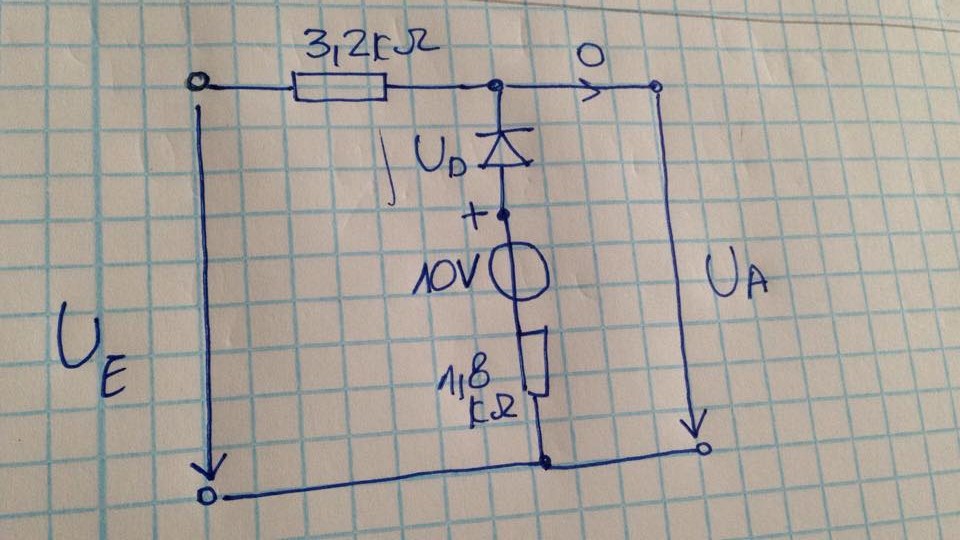 3,2kΩ
0
U_D
+
10V
U_A
U_E
1,8
kΩ